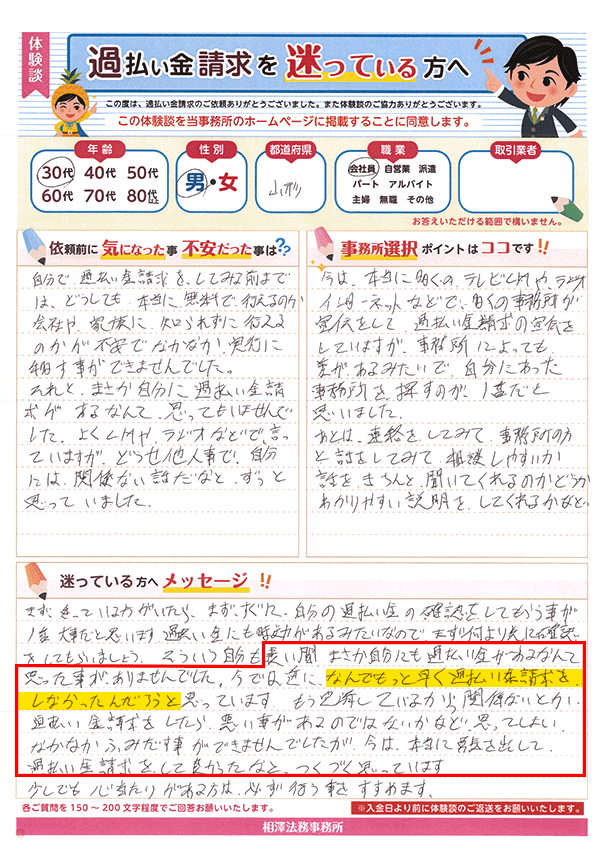 体験談
過払い金請求を迷っている方へ
この度は、過払い金請求のご依頼ありがとうございました。また体験談のご協力ありがとうございます。
この体験談を当事務所のホームページに掲載することに同意します。
年齢
30代 40代 50代
60代 70代 80代以上
性別
男・女
都道府県
山形
職業
会社員 自営業 派遣
パート アルバイト
主婦 無職 その他
取引業者
お答えいただける範囲で構いません。
依頼前に気になった事 不安だった事は??
自分で過払い金請求を、してみる前まで
は、どうしても、本当に、無料で行えるのか
会社や、家族に、知られずに行える
のかが不安でなかなか、実行に
移す事ができませんでした。
それと、まさか自分に過払い金請
求が するなんて、思ってもいませんで
した。よくCMや、ラジオなどで、言っ
ていますが、どうせ他人事で、自分
には、関係ない話だなと、ずっと
思っていました。
事務所選択ポイントはココです!!
今は、本当に多くの、テレビCMや、ラジオ
インターネットなどで、多くの事務所が
宣伝をして、過払い金請求の宣伝を
していますが、事務所によっても
差があるみたいで、自分にあった
事務所を、探すのが、1番だと
思いました。
あとは、連絡をしてみて、事務所の方
と話をしてみて、相談しやすいか
話をきちんと、聞いてくれるのかどうか
わかりやすい説明を、してくれるかなど
迷っている方へメッセージ!!
まず、迷っている方がいたら、まずすぐに、自分の過払い金の確認をしてもらう事が
1番大事だと思います 過払い金にも時効があるみたいなので まず何より先に確認
をしてもらいましょう、そういう自分も長い間 まさか自分にも過払い金があるなんて
思った事がありませんでした。今で日、逆に、なんでもっと早く過払い金請求を、
しなかったんだろうと思っています。もう完済しているから関係ないとか、
過払い金請求をしたら、悪い事があるのではないかなど、思ってしまい、
なかなか、ふみだす事ができませんでしたが、今は、本当に勇気を出して、
過払い金請求をして良かったなと、つくづく思っています
少しでも心当たりがある方は、必ず行う事をすすめます。
各ご質問を150～200文字程度でご回答お願いいたします。
※入金日より前に体験談のご返送をお願いいたします。
相澤法務事務所